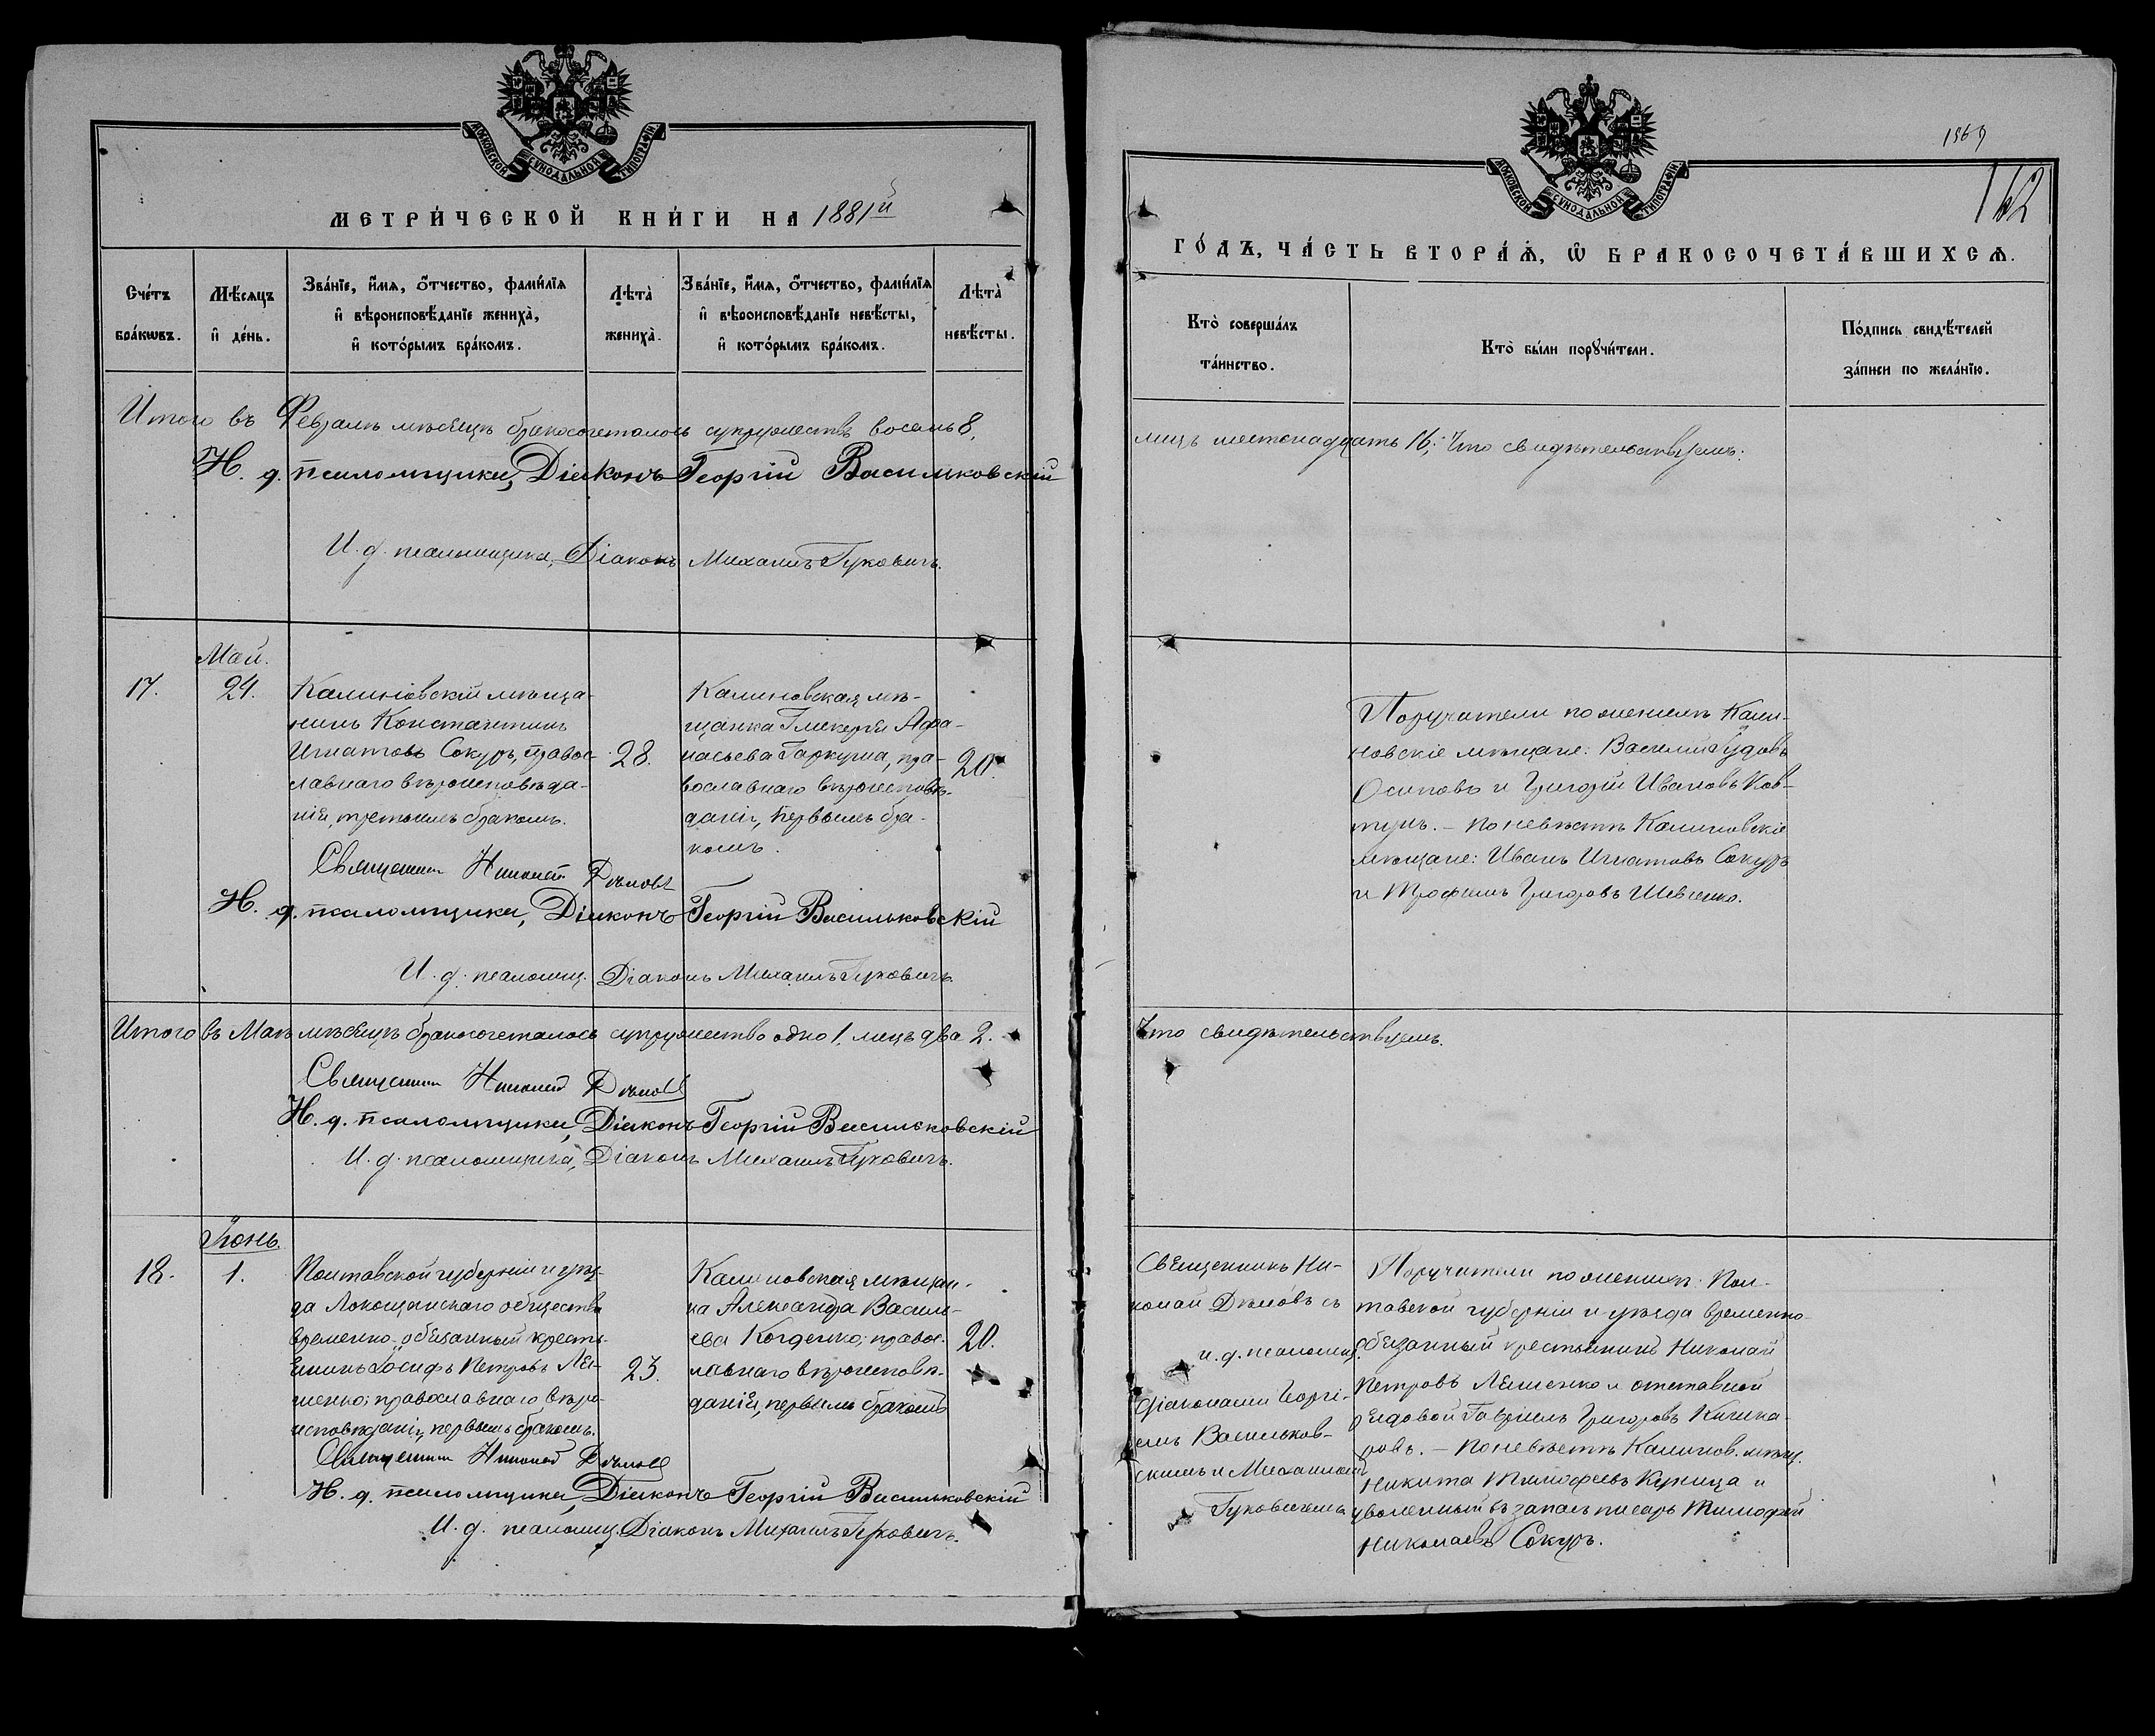 МОСКОВСКОЙ СѴНОДАЛЬНОЙ ТИПОГРАФІИ
МЕТРИ́ЧЕСКОЙ КНИ́ГИ НА 1881й
Сче́тъ бра́кωвъ.
Мѣ́сяцъ и҆ де́нь.
Зва́нїе, и҆́мя, ѻ҆́тчество, фами́лїя
и҆ вѣроисповѣ́данїе жениха̀,
и҆ кото́рымъ бра́комъ.
Лѣта̀ жениха̀.
Зва́нїе, и҆́мя, ѻ҆́тчество, фами́лїя
и҆ вѣроисповѣ́данїе невѣ́сты,
и҆ кото́рымъ бра́комъ.
Лѣта̀ невѣ́сты.
Итого въ Февралѣ мѣсяцѣ бракосочеталось супружествъ восемь 8,
И. д. псаломщика, Діаконъ Георгій Васильковскій
И. д. псаломщика, Діаконъ Михаилъ Гуковичъ.
Май.
17.
24.
Калиновскій мѣща-
нинъ Константинъ
Игнатовъ Сокуръ, правос-
лавнаго вѣроисповѣда-
нія, третьимъ бракомъ.
28.
Калиновская мѣ-
щанка Гликерія Афа-
насьева Гаркуша, пра-
вославнаго вѣроисповѣ-
данія, первымъ бра-
комъ.
20.
Священникъ Николай
И. д. псаломщика, Діаконъ Георгій Васильковскій
И. д. псаломщ. Діаконъ Михаилъ Гуковичъ.
Итого въ Маѣ мѣсяцѣ бракосочеталось супружество одно 1, лицъ два 2.
Священникъ Николай
И. д. псаломщика, Діаконъ Георгій Васильковскій
И. д. псаломщика, Діаконъ Михаилъ Гуковичъ.
Іюнь.
18.
1.
Полтавской губерніи и уѣз-
да общества
временно-обязанный кресть-
янинъ Іосифъ Петровъ Ля-
шенко; православнаго вѣро-
исповѣданія, первымъ бракомъ.
23.
Калиновская мѣщан-
ка Александра Василь-
ева правос-
лавнаго вѣроисповѣ-
данія, первымъ бракомъ
20.
Священникъ Николай
И. д. псаломщика, Діаконъ Георгій Васильковскій
И. д. псаломщ. Діаконъ Михаилъ Гуковичъ.
1569
162
МОСКОВСКОЙ СѴНОДАЛЬНОЙ ТИПОГРАФІИ
ГО́ДЪ, ЧА́СТЬ ВТОРА́Ѧ, Ѡ҆ БРАКОСОЧЕТА́ВШИХСѦ.
Кто̀ соверша́лъ
та́инство.
Кто̀ бы́ли порꙋчи́тели.
По́дпись свидѣ́телей
за́писи по жела́нїю.
лицъ шестьнадцать 16; Что свидѣтельствуемъ:
Поручители по женихѣ Кали-
новскіе мѣщане: Василій
Осиповъ и Григорій Ивановъ Ков-
тунъ. – По невѣстѣ Калиновскіе
мѣщане: Иванъ Игнатовъ Сокуръ
и Трофимъ Григоровъ Шевченко.
Что свидѣтельствуемъ.
Священникъ Ни-
колай съ
и. д. псаломщ.
діаконами Георгі-
емъ Васильков-
скимъ и Михаиломъ
Гуковичемъ
Поручители по женихѣ: Пол-
тавской губерніи и уѣзда временно-
обязанный крестьянинъ Николай
Петровъ Ляшенко и отставной
рядовой Гавріилъ Григоровъ
– По невѣстѣ Калинов. мѣщ.
Никита Тимофеевъ Куница и
уволенный въ запасъ писарь Тимофей
Николаевъ Сокуръ.